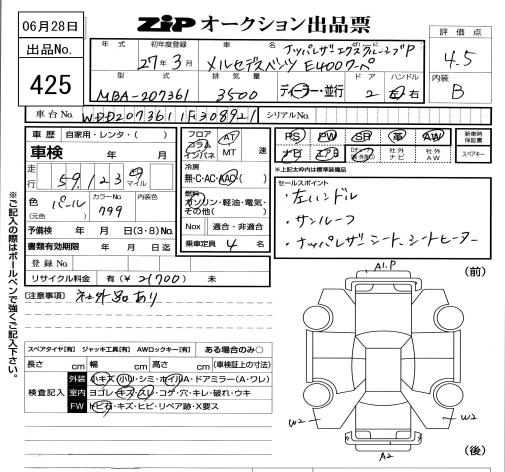 06月28日
ZIP オークション出品票
出品No.
425
年式 初年度登録 車名 グレード
27年3月 メルセデスベンツ E400クーペ ナッパレザーエクスクルーシブP
型式 排気量 ドア ハンドル
MBA-207361 3500 ディーラー・並行 2 左 右
評価点
4.5
内装
B
車台No. WDD2073611F308921 シリアルNo.
車歴 自家用・レンタ・( )
車検 年 月
走行 59,123 キロ マイル
色 (元色) パール カラーNo. 799 内装色
予備検 年 月 日(3・8)の
書類有効期限 年 月 日
登録No.
リサイクル料金 有(¥21700) 未
フロア コラム インパネ AT MT 速
冷房 無・C・AC・AAC
燃料 ガソリン・軽油・電気・その他( )
Nox 適合・非適合
乗車定員 4 名
PS PW SR 革 AW 新車時保証書
ナビ エアB 社外ナビ 社外AW スペアキー
※上記太枠内は標準装備品
セールスポイント
・左ハンドル
・サンルーフ
・ナッパレザーシート、シートヒーター
注意事項 社外品あり
※ご記入の際はボールペンで強くご記入下さい。
スペアタイヤ[有] ジャッキ工具[有] AWロックキー[有] ある場合のみ○
長さ cm 幅 cm 高さ cm (車検証上の寸法)
検査記入
外装 小キズ・小凹・シミ・ホイルA・ドアミラー(A・ワレ)
室内 ヨゴレ・キズ・スレ・コゲ・穴・キレ・破れ・ウキ
FW トビ石・キズ・ヒビ・リペア跡・X要ス
(前)
A1.P
W2
W2
A2
(後)